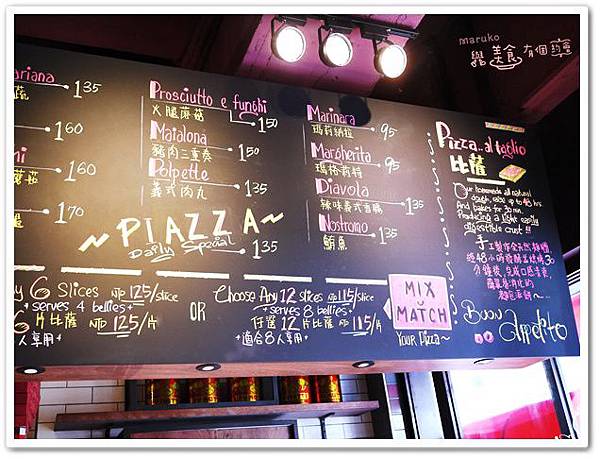 maruko
美食 有個約會
ariana
135
160
mi
160
170
Prosciutto e funghi
火腿蘑菇
150
Maialona
豬肉三重奏
150
Polpette
義式肉丸
135
~ PIAZZA ~
Daply Special
135
Marinara
瑪莉納拉
95
Margherita
瑪格莉特
95
Diavola
辣味義式香腸
135
Nostromo
鮪魚
135
Pizza.. al taglio
比薩
Our homemade all natural
dough, rose up to 48 hrs
And bakes for 30 min.
Producing a light easily
digestible crust !!
手工製作全天然麵糰,
經48小時發酵並烘烤30
分鐘後,完成口感
y 6 Slices NTD 125/slice
serves 4 bellies
6 片比薩 NTD 125/片
人享用
OR
Choose Any 12 slices NTD 115/slice
serves 8 bellies
任選 12 片比薩 NTD 115/片
適合8人享用
MIX
MATCH
Your Pizza~
Buon
Appetito